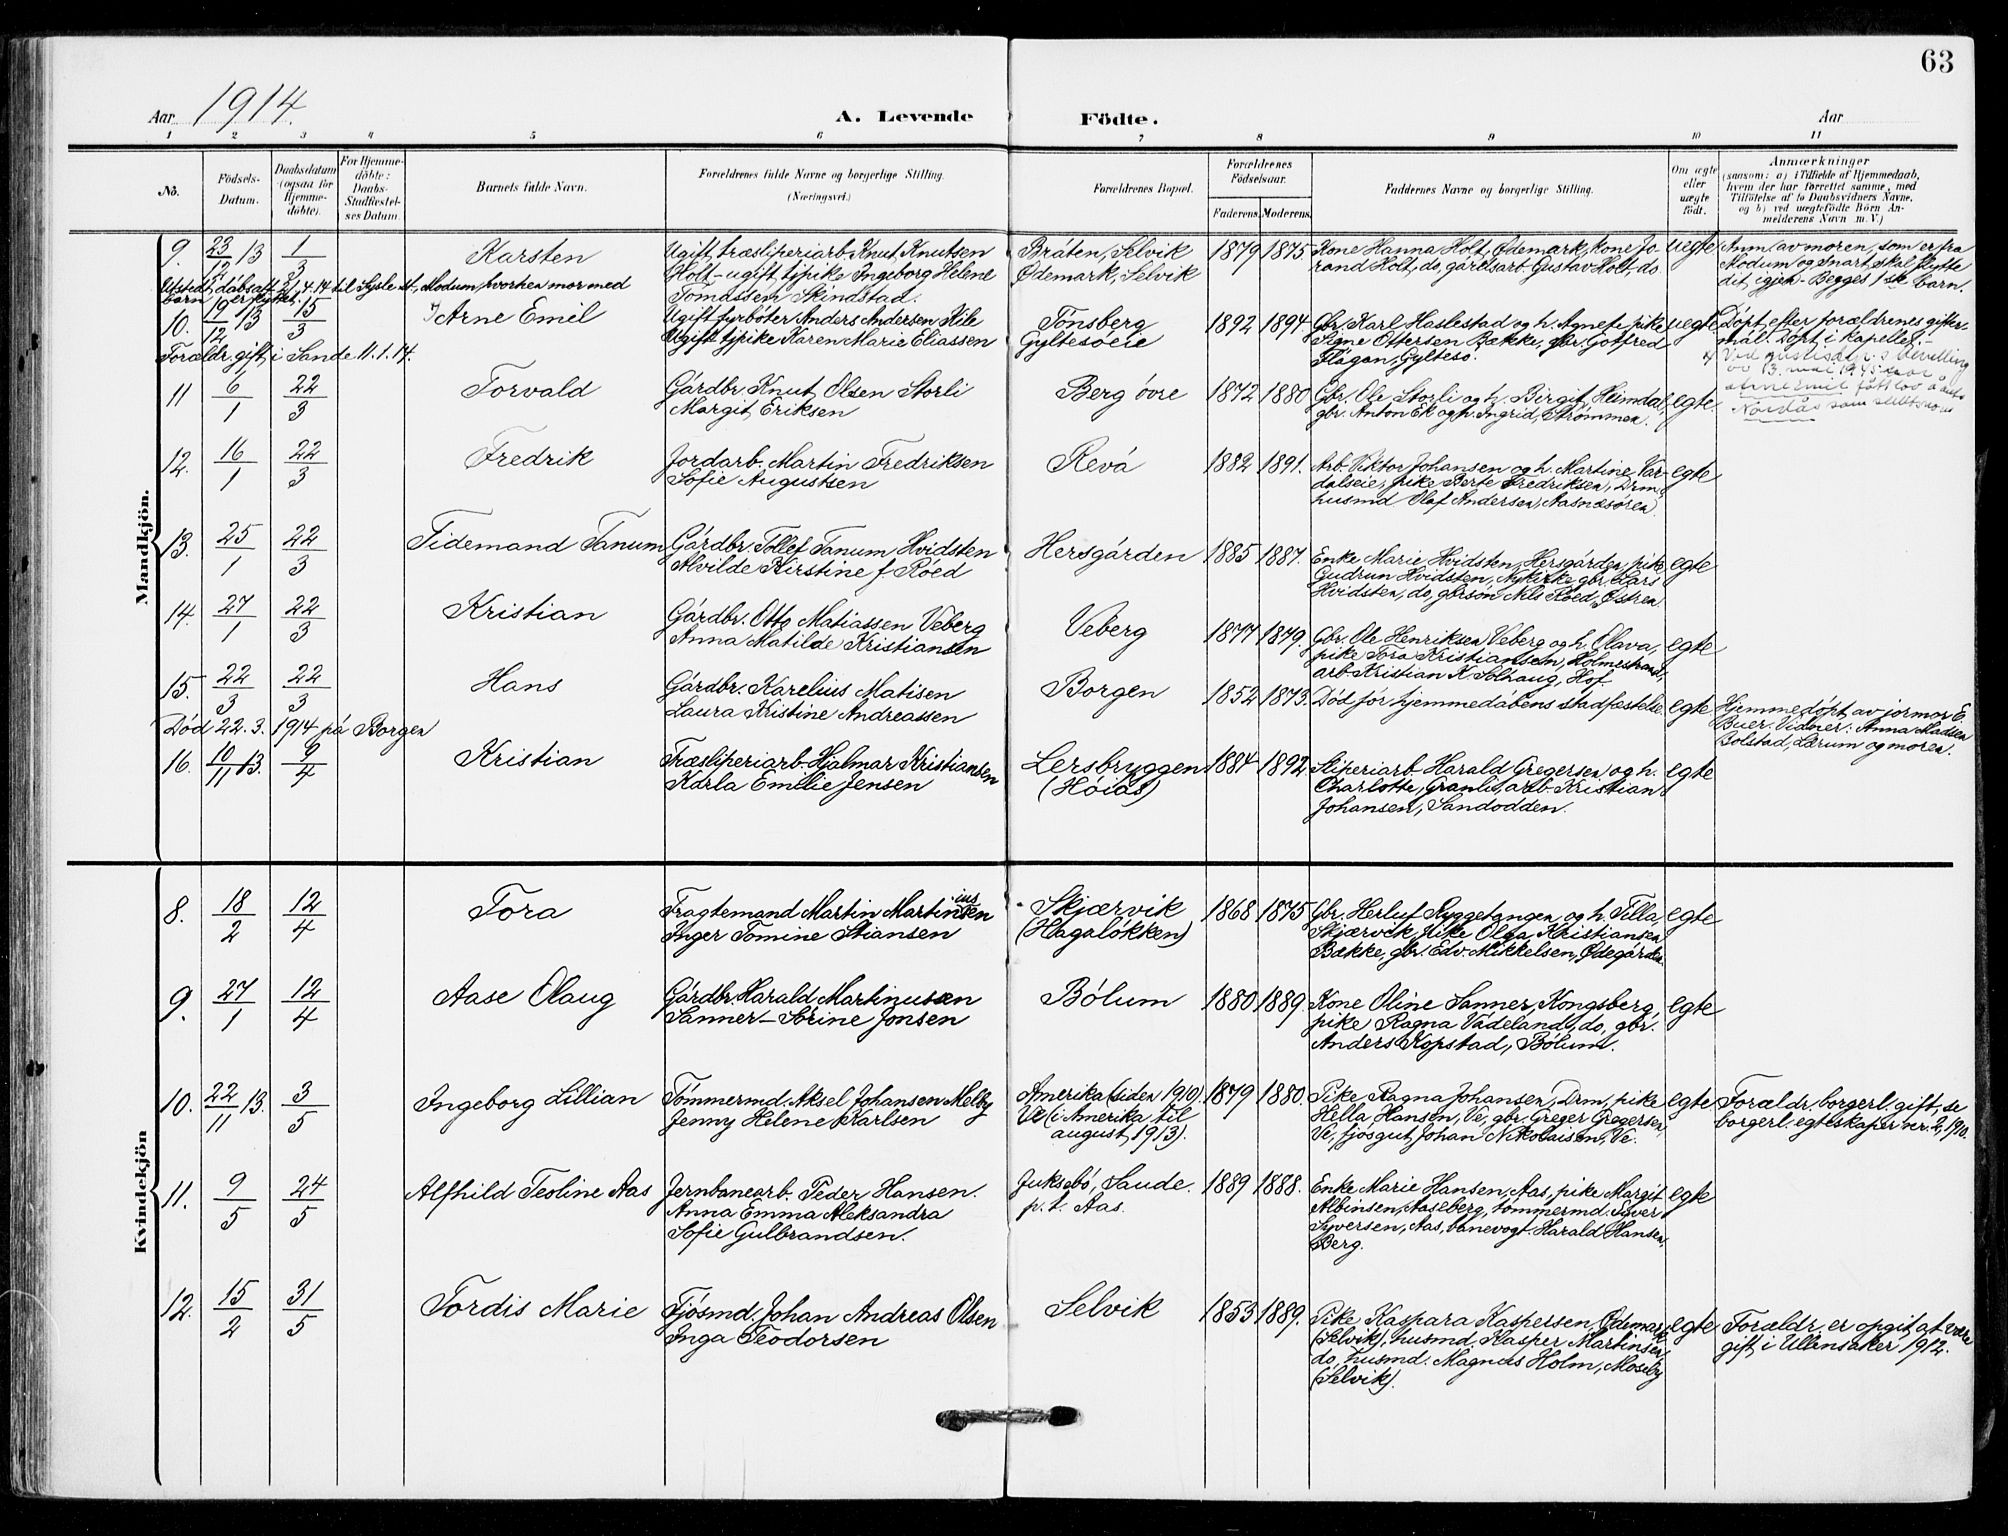 63
Aar 1914.
A. Levende Födte.
Aar
1 2 3 4 5 6 7 8 9 10 11
No.
Födsels-
Datum.
Daabsdatum
(ogsaa for
Hjemme-
döbte).
For Hjemme-
döbte:
Daabs-
Stadfæstel-
ses Datum.
Barnets fulde Navn.
Forældrenes fulde Navne og borgerlige Stilling.
(Næringsvei.)
Forældrenes Bopæl.
Forældrenes
Födselsaar.
Faderens. Moderens.
Faddernes Navne og borgerlige Stilling.
Om ægte
eller
uægte
födt.
Anmærkninger
(saasom: a) i Tilfælde af Hjemmedaab,
hvem der har forrettet samme, med
Tilföielse af to Daabsvidners Navne,
og b) ved uægtefödte Börn An-
melderens Navn m. V.)
Mandkjön.
9. 23/12 13 1/3 Karsten
Ugift træsliperiarb. Knut Knutsen
Holt - ugift tjpike Ingeborg Helene
Tomassen Skindstad.
Bråten, Selvik
Ødemark, Selvik
1879 1875
Kone Hanna Holt, Ødemark, kone Jo-
rand Holt, do, gårdsarb. Gustav Holt, do.
uegte
Anm. av moren, som er fra
Modum og snart skal flytte
dit igjen - Begges 1ste barn.
Utstedt dåbsatt. 21.4.14 til Sysle st., Modum, hvorhen mor med
barn er flyttet.
10. 19/12 13 15/3 Arne Emil
Ugift fyrbøter Anders Andersen Kile
Ugift tjpike Karen Marie Eliassen
Tønsberg
Gyltesøeie
1892 1894
Gbr. Karl Haslestad og h. Agnete, pike
Signe Ottersen Bække, gbr. Gotfred
Hagan, Gyltesø.
uegte
Døpt efter forældrenes gifter-
mål. Døpt i kapellet.
Ved justisdep.s bevilling
av 13. mai 1945 har
Arne Emil fått lov å anta
Nordås som slektsnavn
Forældr. gift i Sande 11.1.14.
11 6/1 22/3 Torvald
Gårdbr. Knut Olsen Storli
Margit Eriksen
Berg øvre
1872 1880
Gbr. Ole Storli og h. Birgit, Heimdal,
gbr. Anton Ek og h. Ingrid, Strømmen.
egte.
12. 16/1 22/3 Fredrik
Jordarb. Martin Fredriksen
Sofie Augustsen
Revå
1882 1891.
Arb. Viktor Johansen og h. Martine, Var-
dalseie, pike Berte Fredriksen, Drm.,
husmd Olaf Andersen, Aasnæsøren.
egte
13. 25/1 22/3 Tidemand Tanum
Gårdbr. Tollef Tanum Hvidsten
Alvilde Kirstine f. Røed
Hersgården
1885 1887.
Enke Marie Hvidsten, Hersgården, pike
Gudrun Hvidsten, Nykirke, gbr. Lars
Hvidsten, do, gbrsøn Nils Røed, Østren.
egte
14. 27/1 22/3 Kristian
Gårdbr. Otto Matiassen Veberg
Anna Matilde Kristiansen
Veberg
1877 1879.
Gbr. Ole Henriksen Veberg og h. Olava,
pike Tora Kristiansen, Holmestrand,
arb. Kristian K Solhaug, Hof.
egte
15. 22/3 22/3 Hans
Gårdbr. Karelius Matisen
Laura Kristine Andreassen
Borgen
1852 1873.
Død før hjemmedåbens stadfæstelse.
egte
Hjemmedøpt av jormor E.
Buer. Vidner: Anna Madsen
Bolstad, Lærum og moren.
Død 22.3. 1914 på Borgen
16. 10/11 13. 9/4 Kristian
Træsliperiarb. Hjalmar Kristiansen
Karla Emilie Jensen
Lersbryggen
(Høiås)
1884 1892.
Sliperiarb. Harald Gregersen og h.
Charlotte, Granli, arb. Kristian
Johansen, Sandodden.
egte
Kvindekjön
8. 18/2 12/4 Tora
Fragtemand Martin Martinsen ius
Inger Tomine Stiansen
Skjærvik
(Hagaløkken)
1868 1875
Gbr. Herluf Ryggetangen og h. Tilla,
Skjærvik, pike Olga Kristiansen
Bække, gbr. Edv. Mikkelsen, Ødegården.
egte
9. 27/1 12/4 Aase Olaug
Gårdbr. Harald Martinusen
Sanner - Sorine Jonsen
Bølum
1880 1889.
Kone Oline Sanner, Kongsberg,
pike Ragna Vådeland, do, gbr.
Anders Kopstad, Bølum.
egte
10. 22/11 13. 3/5 Ingeborg Lillian
Tømmermd. Aksel Johansen Melby
Jenny Helene Karlsen
Amerika (siden 1910)
Ve (i Amerika til
august 1913).
1879 1880.
Pike Ragna Johansen, Drm, pike
Hella Hansen, Ve, gbr. Greger Gregersen,
Ve, fjøsgut Johan Nikolaisen, Ve.
egte
Forældr. borgerl. gift, se
borgerl. egteskaper nr. 2, 1910.
11. 9/5 24/5 Alfhild Teoline Aas
Jernbanearb. Peder Hansen.
Anna Emma Aleksandra
Sofie Gulbrandsen.
Juksebø, Saude.
p.t. Aas.
1889 1888.
Enke Marie Hansen, Aas, pike Margit
Albinsen, Aaseberg, tømmermd. Syver
Syversen, Aas, banevogt. Harald Hansen,
Berg.
egte
12. 15/2 31/5 Tordis Marie
Fjøsmd. Johan Andreas Olsen
Inga Teodorsen
Selvik
1853 1889.
Pike Kaspara Kaspersen, Ødemark
(Selvik), husmd. Kasper Martinsen,
do, husmd. Magnus Holm, Moseby
(Selvik).
egte
Forældr. er opgit at være
gift i Ullensaker 1912.